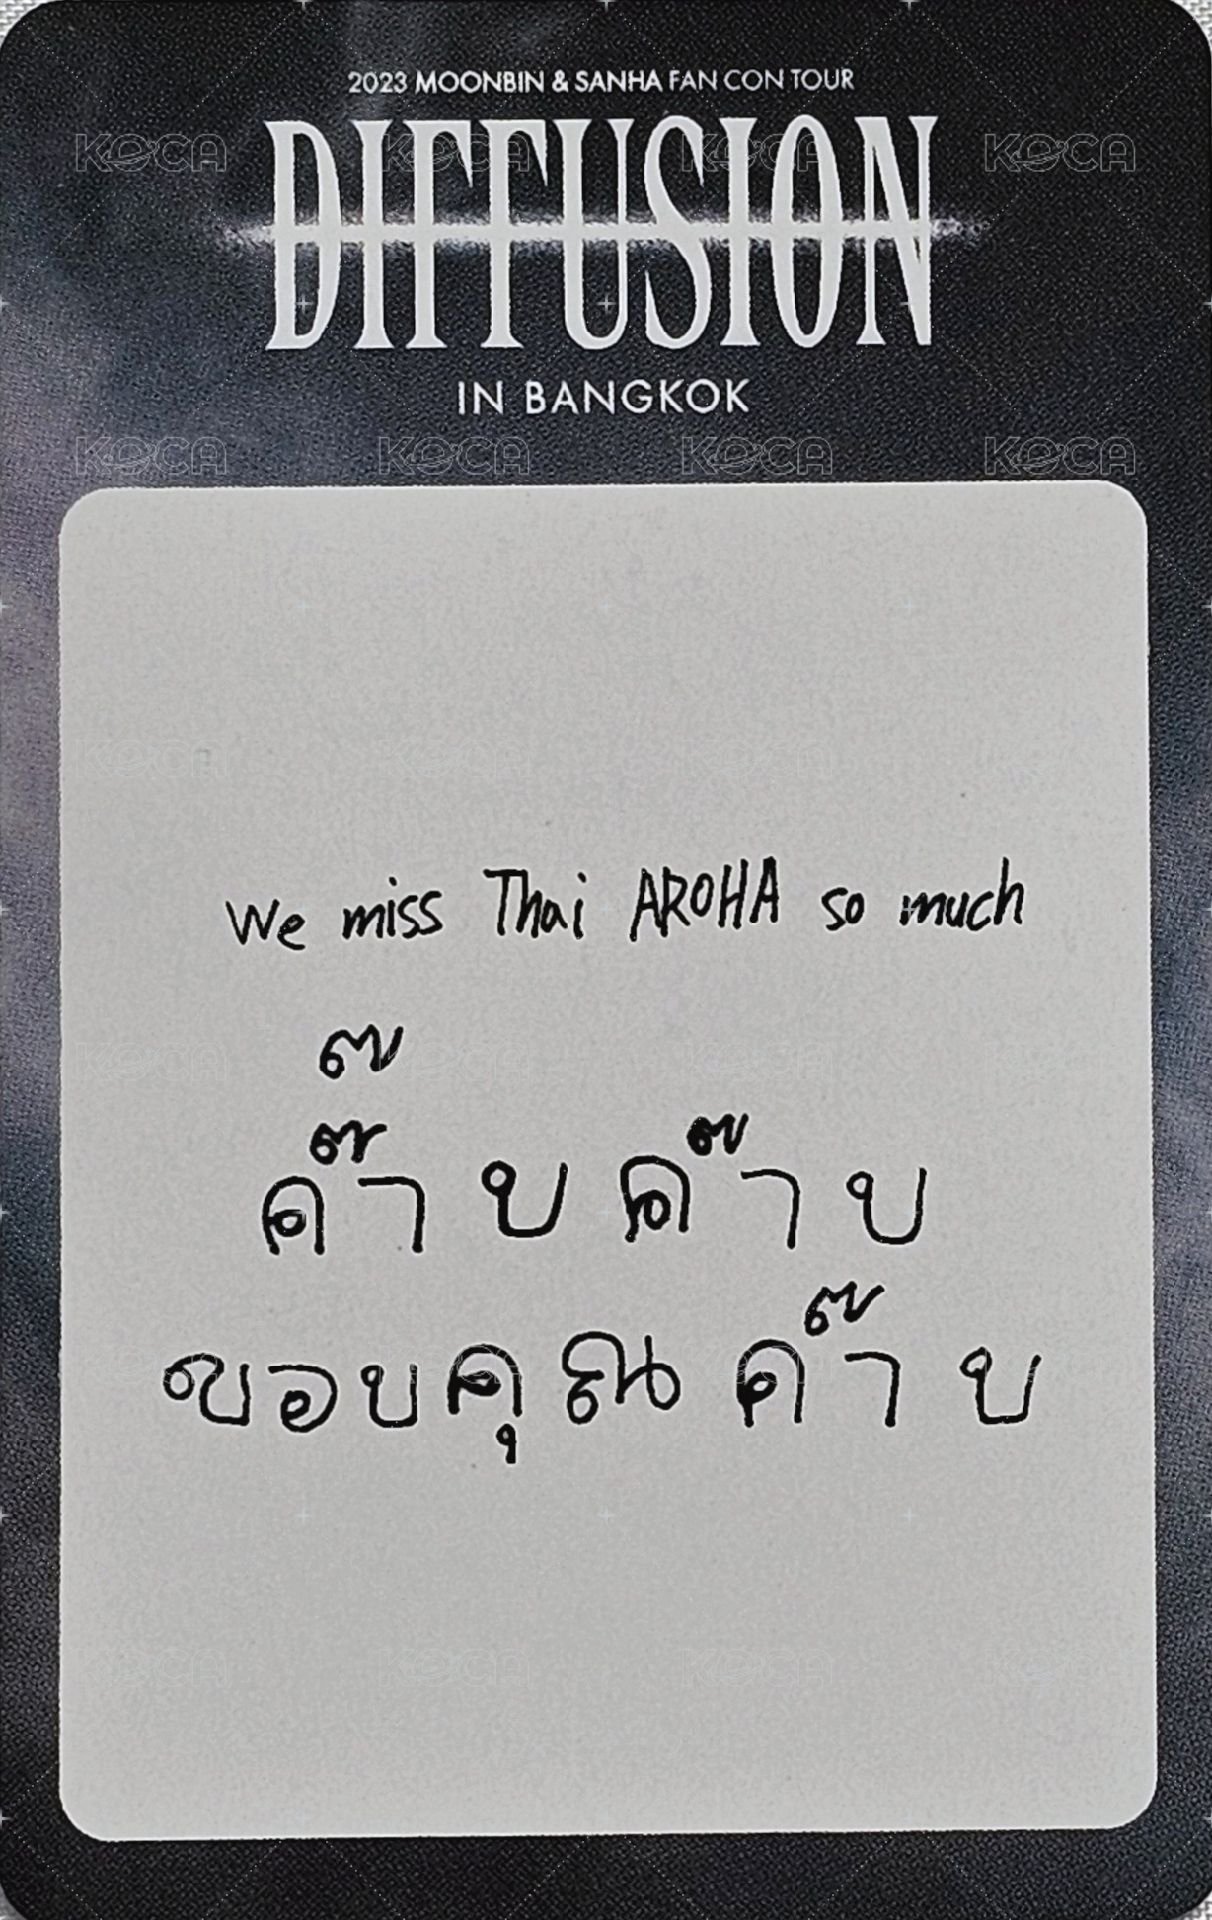 2023 MOONBIN & SANHA FAN CON TOUR
DIFFUSION
IN BANGKOK
We miss Thai AROHA so much
ค๊าบค๊าบ
ขอบคุณค๊าบ
KOCA